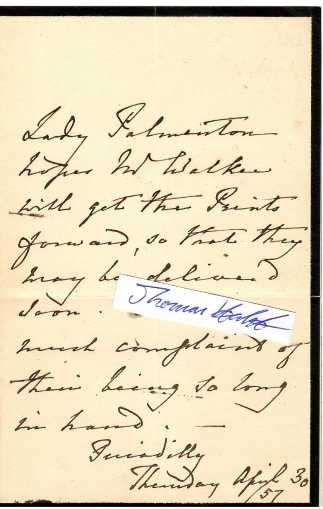 Lady Palmerston
hopes Mr Walker
will get the Prints
forward, so that they
may be delivered
soon.
much complaint of
their being so long
in hand. —
Piccadilly
Thursday April 30
57
Thomas